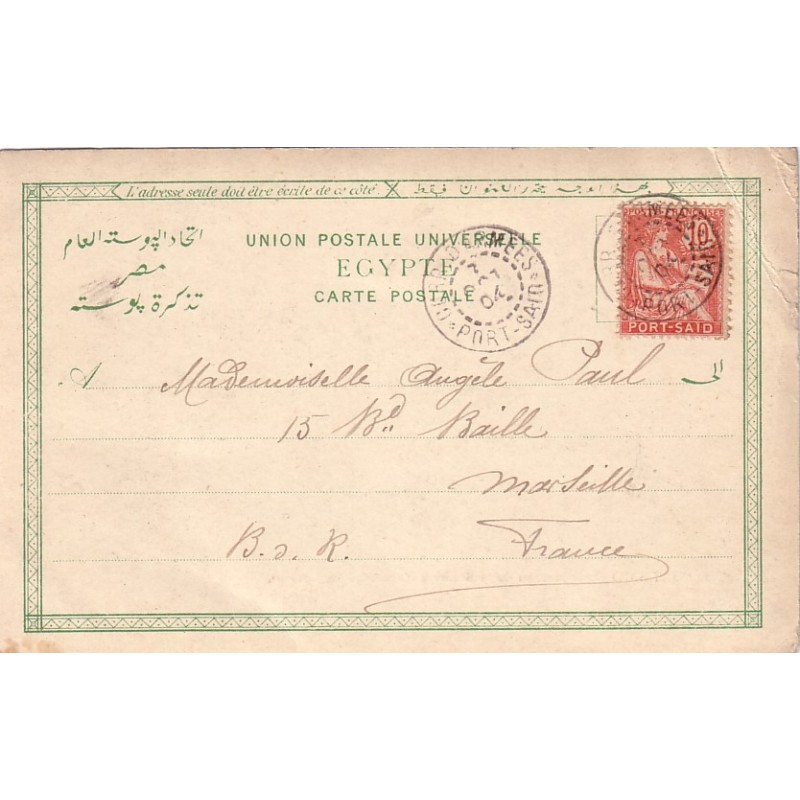 L'adresse seule doit être écrite de ce côté
اتحاد البوسته العام
مصر
تذكرة بوسته
UNION POSTALE UNIVERSELLE
EGYPTE
CARTE POSTALE
10
PORT-SAID
PORT-SAID
04
PORT-SAID
A
Mademoiselle Angèle Paul
الى
15 Bd Baille
Marseille
B. d. R.
France